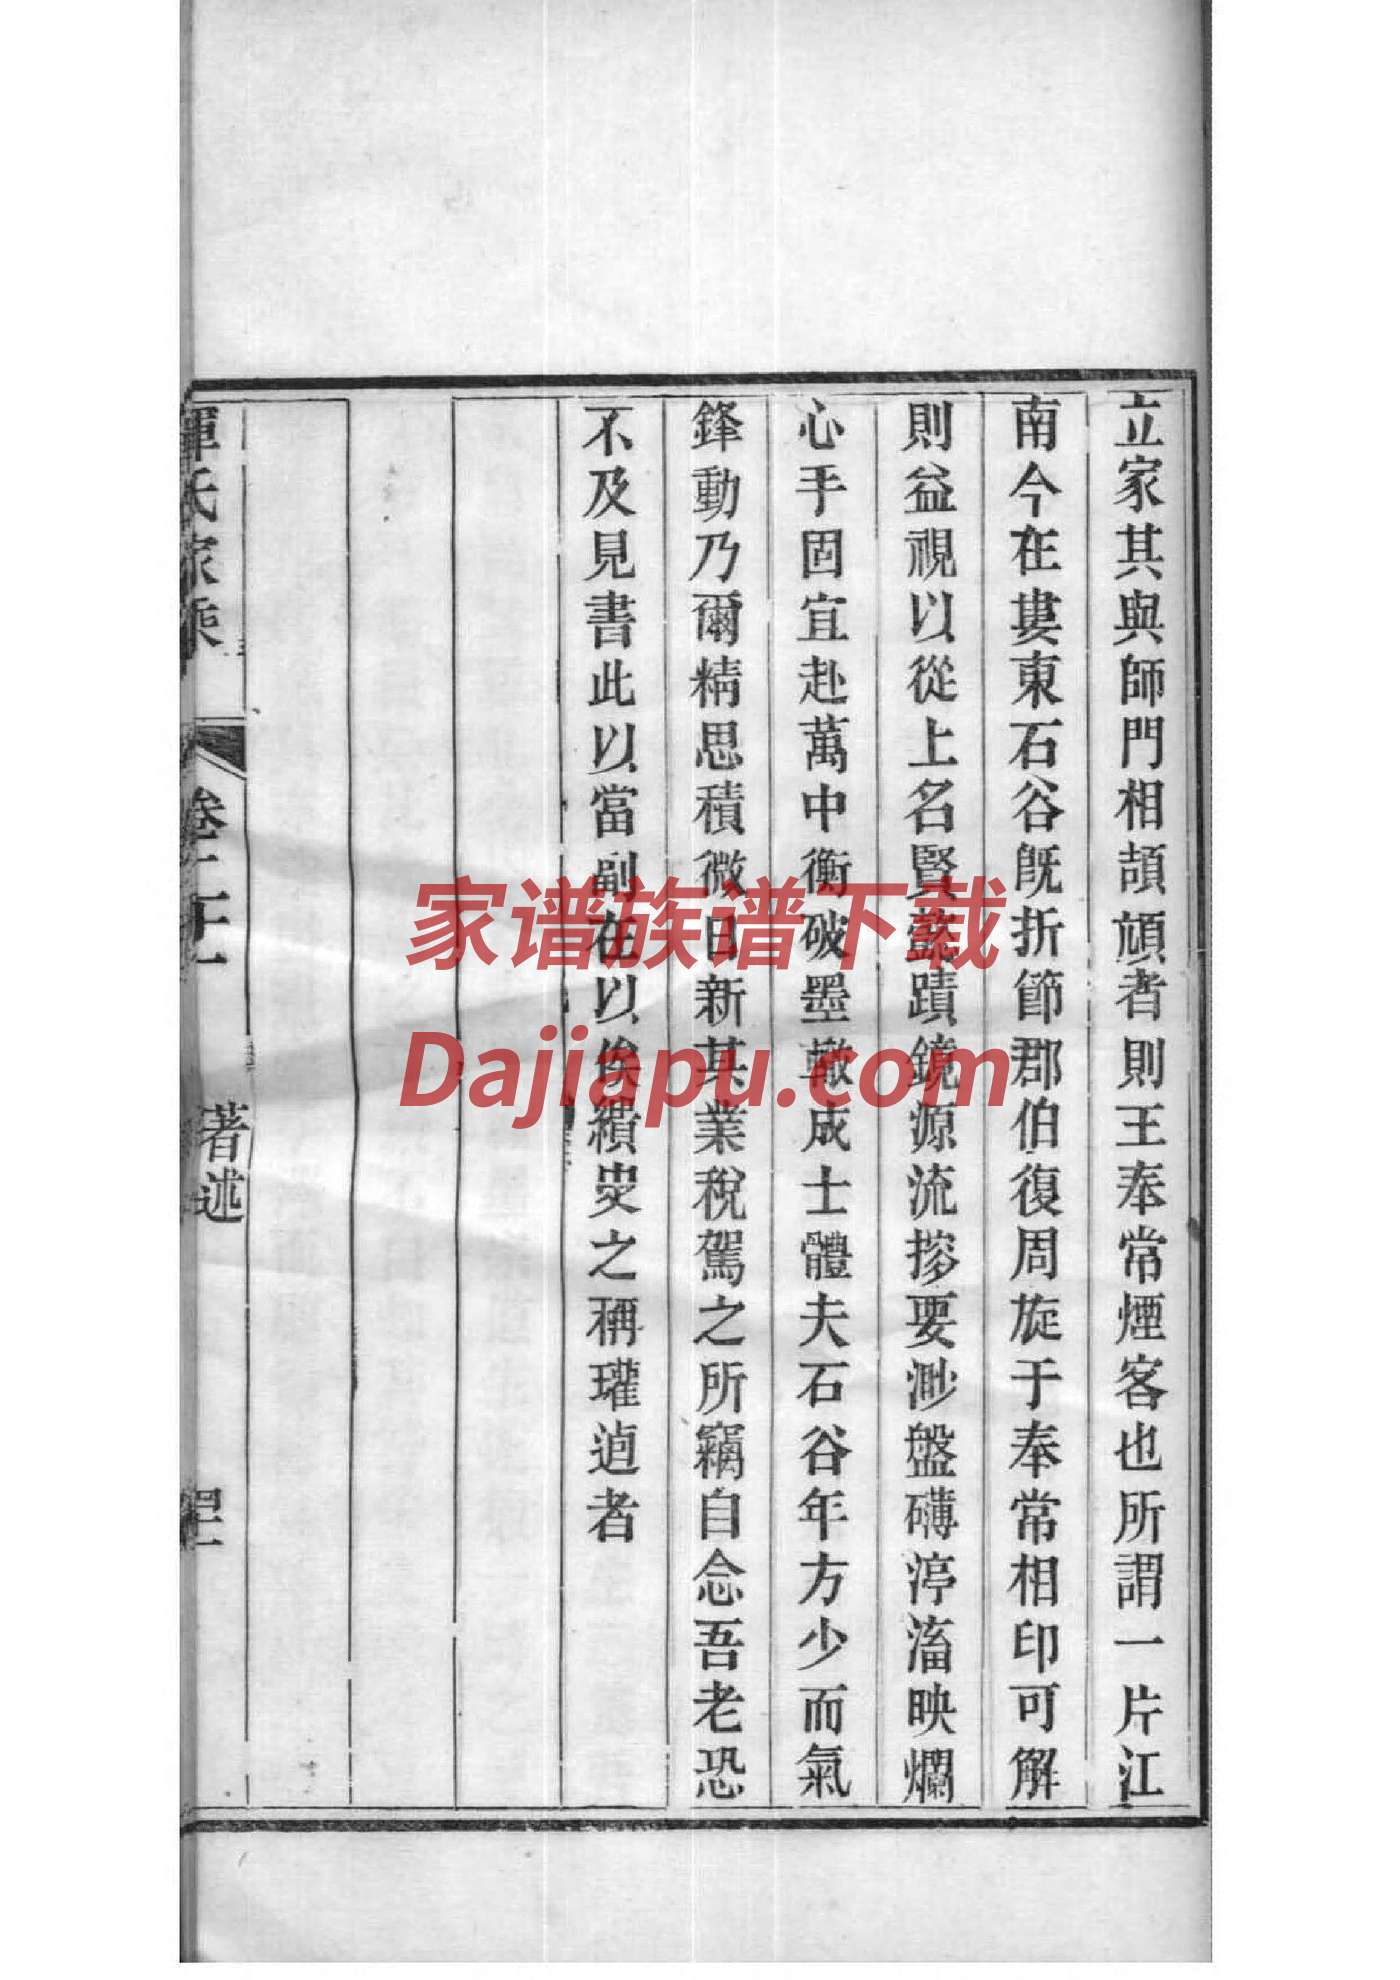 立家其與師門相頡頏者則王奉常煙客也所謂一片江
南今在婁東石谷旣折節郡伯復周旋于奉常相印可解
則益視以從上名賢懿蹟鏡源流摉要渺盤礴渟滀映爛
心手固宜赴萬中衡破墨轍成士體夫石谷年方少而氣
鋒動乃爾精思積微日新其業稅駕之所竊自念吾老恐
不及見書此以當副在以俟繢史之稱瓘逌者
惲氏家乘
卷二十一
著述
四十一
家谱族谱下载
Dajiapu.com